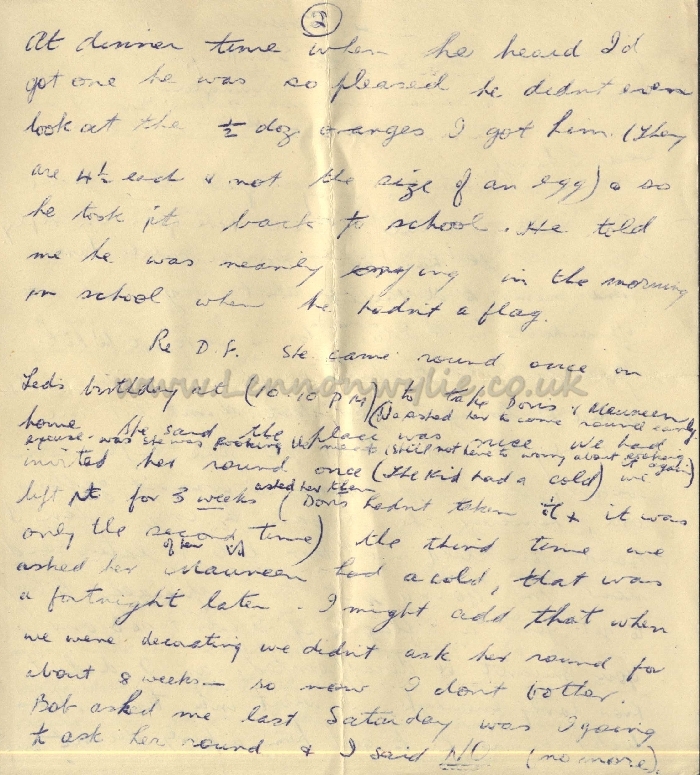 2
At dinner time when he heard I'd
got one he was so pleased he didnt even
look at the ½ doz oranges I got him. (They
are 4½ each & not the size of an egg) & so
he took it back to school. He told
me he was nearily crying in the morning
in school when he hadn't a flag.
Re D.F. She came round once on
Led's birthday at (10.10 P.M) to take Doris & Maureen
(We asked her to come round early
home she said the place was nice we had
excuse was she was cooking the meat (she'll not have to worry about cooking it again)
invited her round once (the kid had a cold) we
left it for 3 weeks asked her then (Doris hadn't taken it & it was
only the second time) the third time we
of her
asked her Maureen had a cold, that was
a fortnight later. I might add that when
we were decorating we didn't ask her round for
about 8 weeks— so now I don't bother.
Bob asked me last Saturday was I going
to ask her round & I said NO (no more).
www.Lennonwylie.co.uk